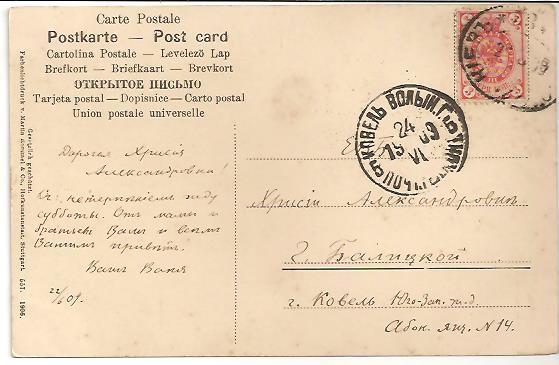 Carte Postale
Postkarte — Post card
Cartolina Postale — Levelező Lap
Brefkort — Briefkaart — Brevkort
ОТКРЫТОЕ ПИСЬМО
Tarjeta postal — Dopisnice — Carto postal
Union postale universelle
Дорогая Хрисія
Александровна!
Съ нетерпѣніемъ жду
субботы. Отъ мамы и
братьевъ Вамъ и всѣмъ
Вашимъ привѣтъ.
Вашъ Ваня
22/6 09.
КОВЕЛЬ ВОЛЫН. Г.
24
19 09
VI
Хрисіи Александровнѣ
Г. Балицкой
г. Ковель Юго-Зап. ж. д.
Абон. ящ. N 14.
Farbenlichtdruck v. Martin Rommel & Co., Hofkunstanstalt, Stuttgart. 557. 1906.
Gesetzlich geschützt.